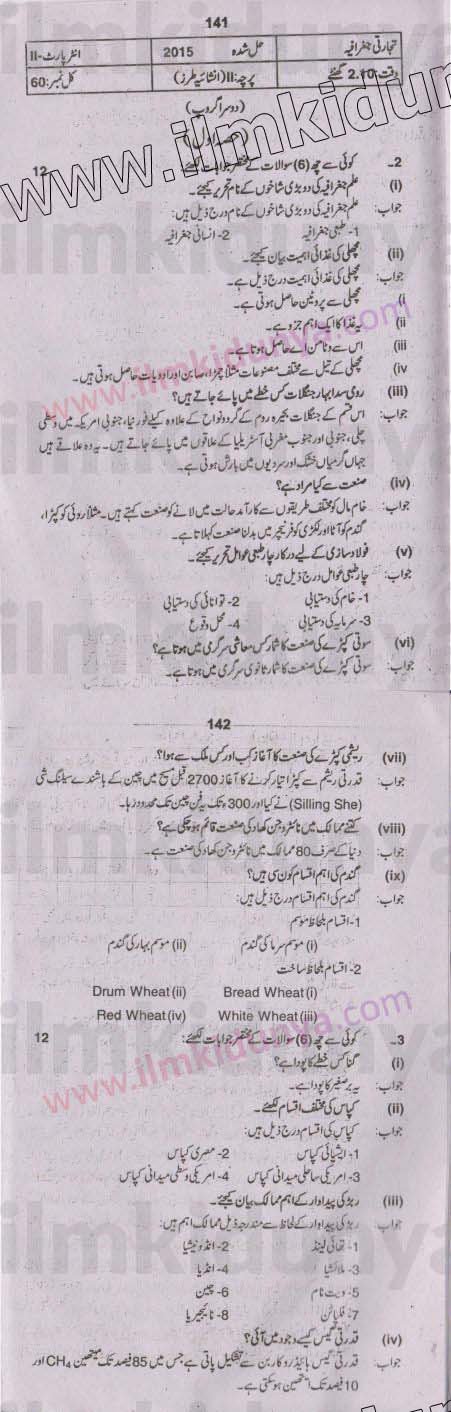 141
تجارتی جغرافیہ حل شدہ 2015 انٹر پارٹ-II
وقت: 2.10 گھنٹے پرچہ: II (انشائیہ طرز) کل نمبر: 60
(دوسرا گروپ)
(حصہ اول)
2- کوئی سے چھ (6) سوالات کے مختصر جوابات لکھئے: 12
(i) علم جغرافیہ کی دو بڑی شاخوں کے نام تحریر کیجئے۔
جواب: علم جغرافیہ کی دو بڑی شاخوں کے نام درج ذیل ہیں:
1- طبعی جغرافیہ 2- انسانی جغرافیہ
(ii) مچھلی کی غذائی اہمیت بیان کیجئے۔
جواب: مچھلی کی غذائی اہمیت درج ذیل ہے۔
i مچھلی سے پروٹین حاصل ہوتی ہے۔
ii یہ غذا کا ایک اہم جزو ہے۔
iii اس سے وٹامن اے حاصل ہوتا ہے۔
iv مچھلی کے تیل سے مختلف مصنوعات مثلاً چمڑا، صابن اور ادویات حاصل ہوتی ہیں۔
(iii) رومی سدا بہار جنگلات کس خطے میں پائے جاتے ہیں؟
جواب: اس قسم کے جنگلات بحیرہ روم کے گردونواح کے علاوہ کیلی فورنیا، جنوبی امریکہ میں وسطی
چلی، جنوبی اور جنوب مغربی آسٹریلیا کے علاقوں میں پائے جاتے ہیں۔ یہ وہ علاقے ہیں
جہاں گرمیاں خشک اور سردیوں میں بارش ہوتی ہے۔
(iv) صنعت سے کیا مراد ہے؟
جواب: خام مال کو مختلف طریقوں سے کارآمد حالت میں لانے کو صنعت کہتے ہیں۔ مثلاً روئی کو کپڑا،
گندم کو آٹا اور لکڑی کو فرنیچر میں بدلنا صنعت کہلاتا ہے۔
(v) فولاد سازی کے لیے درکار چار طبعی عوامل تحریر کیجئے۔
جواب: چار طبعی عوامل درج ذیل ہیں:
1- خام کی دستیابی 2- توانائی کی دستیابی
3- سرمایہ کی دستیابی 4- محل وقوع
(vi) سوتی کپڑے کی صنعت کا شمار کس معاشی سرگرمی میں ہوتا ہے؟
جواب: سوتی کپڑے کی صنعت کا شمار ثانوی سرگرمی میں ہوتا ہے۔
142
(vii) ریشمی کپڑے کی صنعت کا آغاز کب اور کس ملک سے ہوا؟
جواب: قدرتی ریشم سے کپڑا تیار کرنے کا آغاز 2700 قبل مسیح میں چین کے باشندے سیلنگ شی
(Silling She) نے کیا اور 300ء تک یہ فن چین تک محدود رہا۔
(viii) کتنے ممالک میں نائٹروجن کھاد کی صنعت قائم ہو چکی ہے؟
جواب: دنیا کے صرف 80 ممالک میں نائٹروجن کھاد کی صنعت ہے۔
(ix) گندم کی اہم اقسام کون سی ہیں؟
جواب: گندم کی اہم اقسام درج ذیل ہیں:
1- اقسام بلحاظ موسم
(i) موسم سرما کی گندم (ii) موسم بہار کی گندم
2- اقسام بلحاظ ساخت
Bread Wheat (i) Drum Wheat (ii)
White Wheat (iii) Red Wheat (iv)
3- کوئی سے چھ (6) سوالات کے مختصر جوابات لکھئے: 12
(i) گنا کس خطے کا پودا ہے؟
جواب: یہ برصغیر کا پودا ہے۔
(ii) کپاس کی مختلف اقسام لکھئے۔
جواب: کپاس کی اقسام درج ذیل ہیں:
1- ایشیائی کپاس 2- مصری کپاس
3- امریکی ساحلی میدانی کپاس 4- امریکی وسطی میدانی کپاس
(iii) ربڑ کی پیداوار کے اہم ممالک بیان کیجئے۔
جواب: ربڑ کی پیداوار کے لحاظ سے مندرجہ ذیل ممالک اہم ہیں:
1- تھائی لینڈ 2- انڈونیشیا
3- ملائشیا 4- انڈیا
5- ویت نام 6- چین
7- فلپائن 8- نائیجیریا
(iv) قدرتی گیس کیسے وجود میں آئی؟
جواب: قدرتی گیس ہائیڈروکاربن سے تشکیل پاتی ہے جس میں 85 فیصد تک میتھین CH4 اور
10 فیصد تک ایتھین ہوسکتی ہے۔
www.ilmkidunya.com